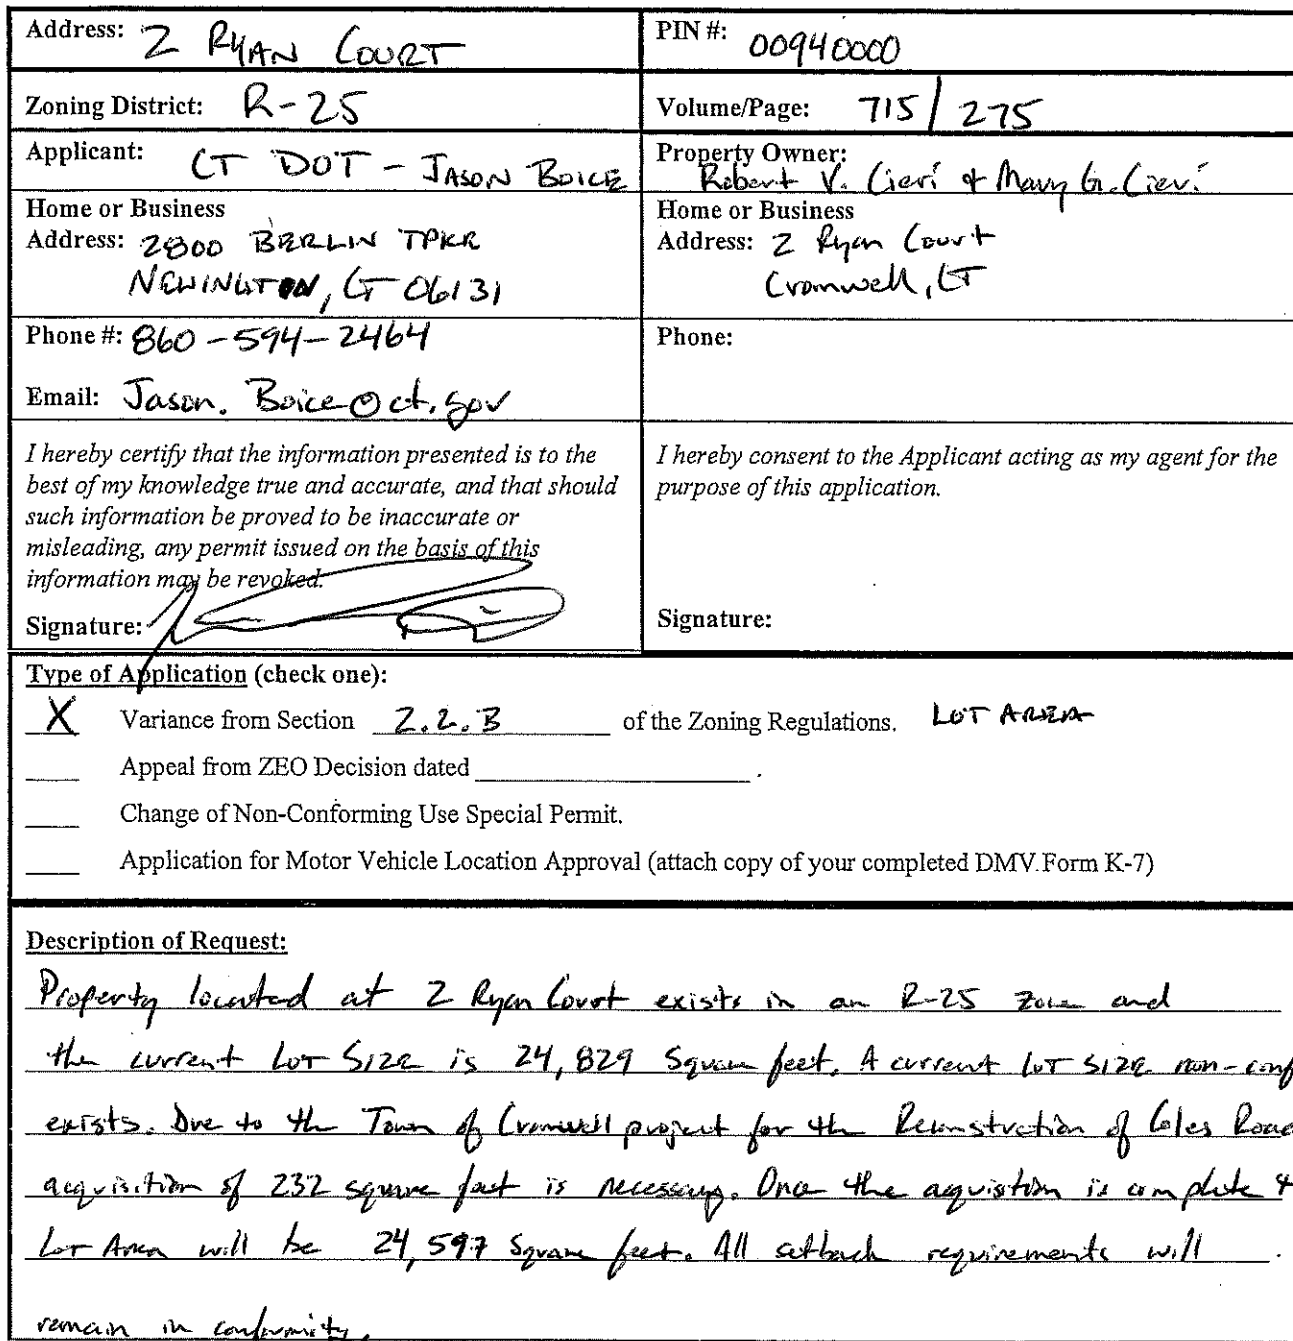 Address: 2 RYAN COURT
PIN #: 00940000
Zoning District: R-25
Volume/Page: 715/275
Applicant: CT DOT - JASON BOICE
Property Owner:
Robert V. Cieri & Mary G. Cieri
Home or Business
Address: 2800 BERLIN TPKE
NEWINGTON, CT 06131
Home or Business
Address: 2 Ryan Court
Cromwell, CT
Phone #: 860-594-2464
Email: Jason.Boice@ct.gov
Phone:
I hereby certify that the information presented is to the
best of my knowledge true and accurate, and that should
such information be proved to be inaccurate or
misleading, any permit issued on the basis of this
information may be revoked.
Signature:
I hereby consent to the Applicant acting as my agent for the
purpose of this application.
Signature:
Type of Application (check one):
X Variance from Section 2.2.B of the Zoning Regulations. LOT AREA
Appeal from ZEO Decision dated .
Change of Non-Conforming Use Special Permit.
Application for Motor Vehicle Location Approval (attach copy of your completed DMV Form K-7)
Description of Request:
Property located at 2 Ryan Court exists in an R-25 zone and
the current LOT SIZE is 24,829 Square feet. A current LOT SIZE non-conf
exists. Due to the Town of Cromwell project for the Reconstruction of Coles Road
acquisition of 232 square feet is necessary. Once the acquistion is complete t
Lot Area will be 24,597 Square feet. All setback requirements will
remain in conformity.